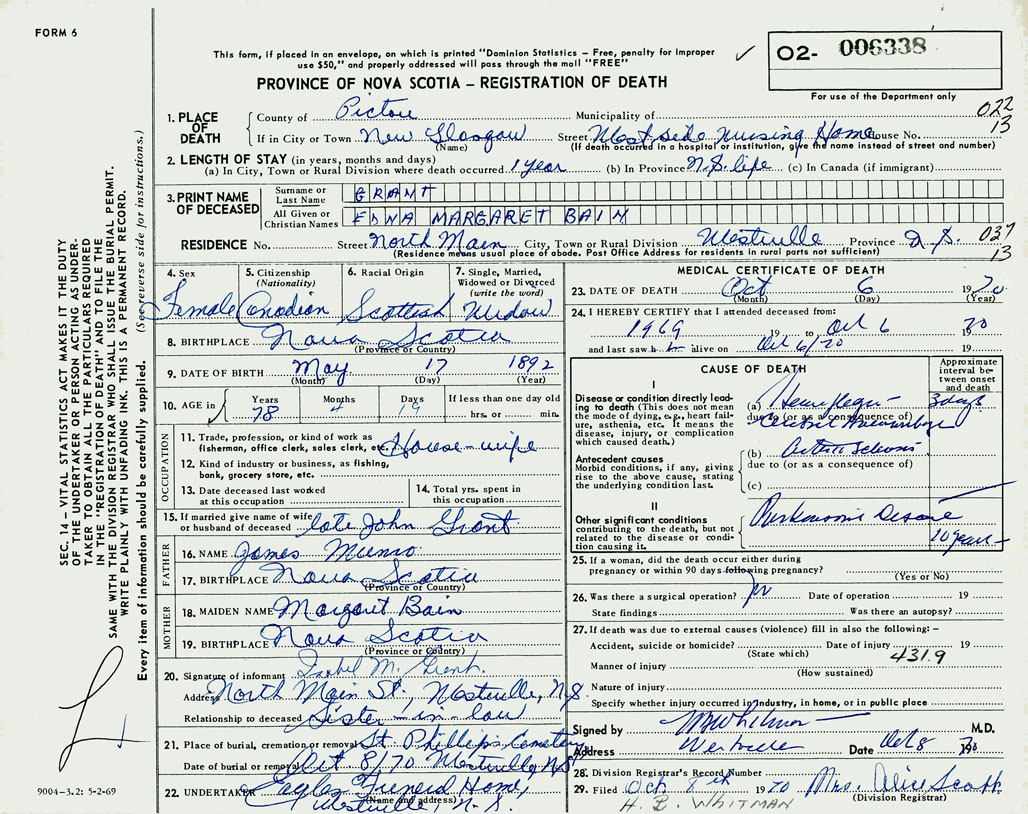 FORM 6
This form, if placed in an envelope, on which is printed "Dominion Statistics – Free, penalty for improper
use $50," and properly addressed will pass through the mail "FREE"
02- 006338
PROVINCE OF NOVA SCOTIA – REGISTRATION OF DEATH
For use of the Department only
022
13
1. PLACE OF DEATH
County of Pictou Municipality of
If in City or Town New Glasgow Street West Side Nursing Home House No.
(Name) (If death occurred in a hospital or institution, give the name instead of street and number)
2. LENGTH OF STAY (in years, months and days)
(a) In City, Town or Rural Division where death occurred 1 year (b) In Province N.S. life (c) In Canada (if immigrant)
3. PRINT NAME OF DECEASED
Surname or Last Name GRANT
All Given or Christian Names EDNA MARGARET BAIN
RESIDENCE No. Street North Main City, Town or Rural Division Westville Province N.S. 037
13
(Residence means usual place of abode. Post Office Address for residents in rural parts not sufficient)
4. Sex
Female
5. Citizenship
(Nationality)
Canadian
6. Racial Origin
Scottish
7. Single, Married,
Widowed or Divorced
(write the word)
Widow
8. BIRTHPLACE Nova Scotia
(Province or Country)
9. DATE OF BIRTH May 17 1892
(Month) (Day) (Year)
10. AGE in Years Months Days If less than one day old
78 4 19 hrs. or min.
OCCUPATION
11. Trade, profession, or kind of work as
fisherman, office clerk, sales clerk, etc. House-wife
12. Kind of industry or business, as fishing,
bank, grocery store, etc.
13. Date deceased last worked
at this occupation
14. Total yrs. spent in
this occupation
15. If married give name of wife
or husband of deceased late John Grant
FATHER
16. NAME James Munro
17. BIRTHPLACE Nova Scotia
(Province or Country)
MOTHER
18. MAIDEN NAME Margaret Bain
19. BIRTHPLACE Nova Scotia
(Province or Country)
20. Signature of informant Isabel M. Grant.
Address North Main St., Westville, N.S.
Relationship to deceased Sister-in-law
21. Place of burial, cremation or removal St. Phillips Cemetery
Date of burial or removal Oct 8/70 Westville, N.S.
22. UNDERTAKER Eagles Funeral Home,
(Name and address)
Westville, N.S.
MEDICAL CERTIFICATE OF DEATH
23. DATE OF DEATH Oct 6 1970
(Month) (Day) (Year)
24. I HEREBY CERTIFY that I attended deceased from:
1969 19 to Oct 6 1970
and last saw h alive on Oct 6/70 19
CAUSE OF DEATH
Approximate
interval be-
tween onset
and death
I
Disease or condition directly lead-
ing to death (This does not
mean the mode of dying, e.g., heart fail-
ure, asthenia, etc. It means the
disease, injury, or complication
which caused death.)
(a) Hemiplegia 3 days
due to (or as a consequence of)
Cerebral
Antecedent causes
Morbid conditions, if any, giving
rise to the above cause, stating
the underlying condition last.
(b)
due to (or as a consequence of)
(c)
II
Other significant conditions
contributing to the death, but not
related to the disease or condi-
tion causing it.
Parkinsonis Disease
10 years
25. If a woman, did the death occur either during
pregnancy or within 90 days following pregnancy?
(Yes or No)
26. Was there a surgical operation? Date of operation 19
State findings Was there an autopsy?
27. If death was due to external causes (violence) fill in also the following: –
Accident, suicide or homicide? Date of injury 19
(State which) 431.9
Manner of injury
(How sustained)
Nature of injury
Specify whether injury occurred in industry, in home, or in public place
Signed by M.D.
Address Westville Date Oct 8 1970
28. Division Registrar's Record Number
29. Filed Oct. 8th 1970 Mrs. Alice Scott
(Division Registrar)
H. B. WHITMAN
SEC. 14 – VITAL STATISTICS ACT MAKES IT THE DUTY
OF THE UNDERTAKER OR PERSON ACTING AS UNDER-
TAKER TO OBTAIN ALL THE PARTICULARS REQUIRED
IN THE "REGISTRATION OF DEATH" AND TO FILE THE
SAME WITH THE DIVISION REGISTRAR WHO SHALL ISSUE THE BURIAL PERMIT.
WRITE PLAINLY WITH UNFADING INK. THIS IS A PERMANENT RECORD.
Every item of information should be carefully supplied. (See reverse side for instructions.)
9004–3.2: 5-2-69